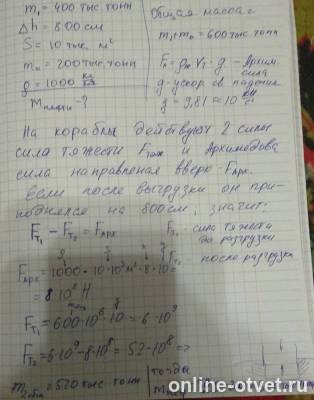 m₁ = 400 тыс тонн
Δh = 800 см
S = 10 тыс. м²
mₙ = 200 тыс тонн
g = 1000 кг/м³
Общая масса =
m₁+mₙ = 600 тыс тонн
g ≈ 9,81 ≈ 10
На корабль действуют 2 силы
сила тяжести Fтяж и Архимедова
сила направленая вверх - Fарх.
Если после выгрузки он при-
поднялся на 800 см, значит:
Fт₁ - Fт₂ = Fарх
Fт₁ - сила тяжести до разгрузки
Fт₂ - после разгрузки
Fарх = 1000 · 10 · 10³ м² · 8 · 10 =
= 8 · 10⁸ Н
Fт₁ = 600 · 10⁶ · 10 = 6 · 10⁹
Fт₂ = 6·10⁹ - 8·10⁸ = 52 · 10⁸ =>
= 520 тыс тонн
тогда
online-otvet.ru